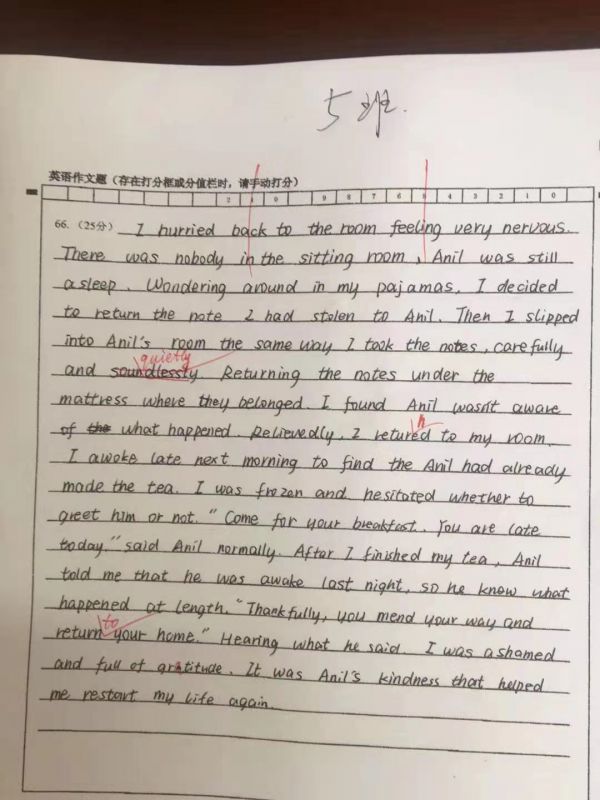 5班.
英语作文题（存在打分框或分值栏时，请手动打分）
2 1 0 9 8 7 6 5 4 3 2 1 0
66.（25分） I hurried back to the room feeling very nervous.
There was nobody in the sitting room, Anil was still
asleep. Wondering around in my pajamas, I decided
to return the note I had stolen to Anil. Then I slipped
into Anil's room the same way I took the notes, carefully
quietly
and soundlessty. Returning the notes under the
mattress where they belonged. I found Anil wasn't aware
n
of the what happened. Relievedly, I retured to my room.
I awoke late next morning to find the Anil had already
made the tea. I was frozen and hesitated whether to
greet him or not. "Come for your breakfast. You are late
today." said Anil normally. After I finished my tea, Anil
told me that he was awake last night, so he know what
happened at length. "Thankfully, you mend your way and
to
return your home." Hearing what he said. I was ashamed
and full of gratitude. It was Anil's kindness that helped
me restart my life again.